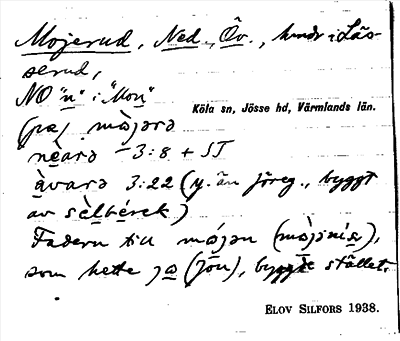 Mojerud, Ned., Öv., hmdr i Läs-
serud,
NO "n" i "Mon"
Köla sn, Jösse hd, Värmlands län.
(pa) mòjərə
nèarə 3:8 + ST
àvarə 3:22 (y. än föreg., byggt
av sèlbérek)
Fadern till mójən
som hette (jön), byggde stället.
ELOV SILFORS 1938.